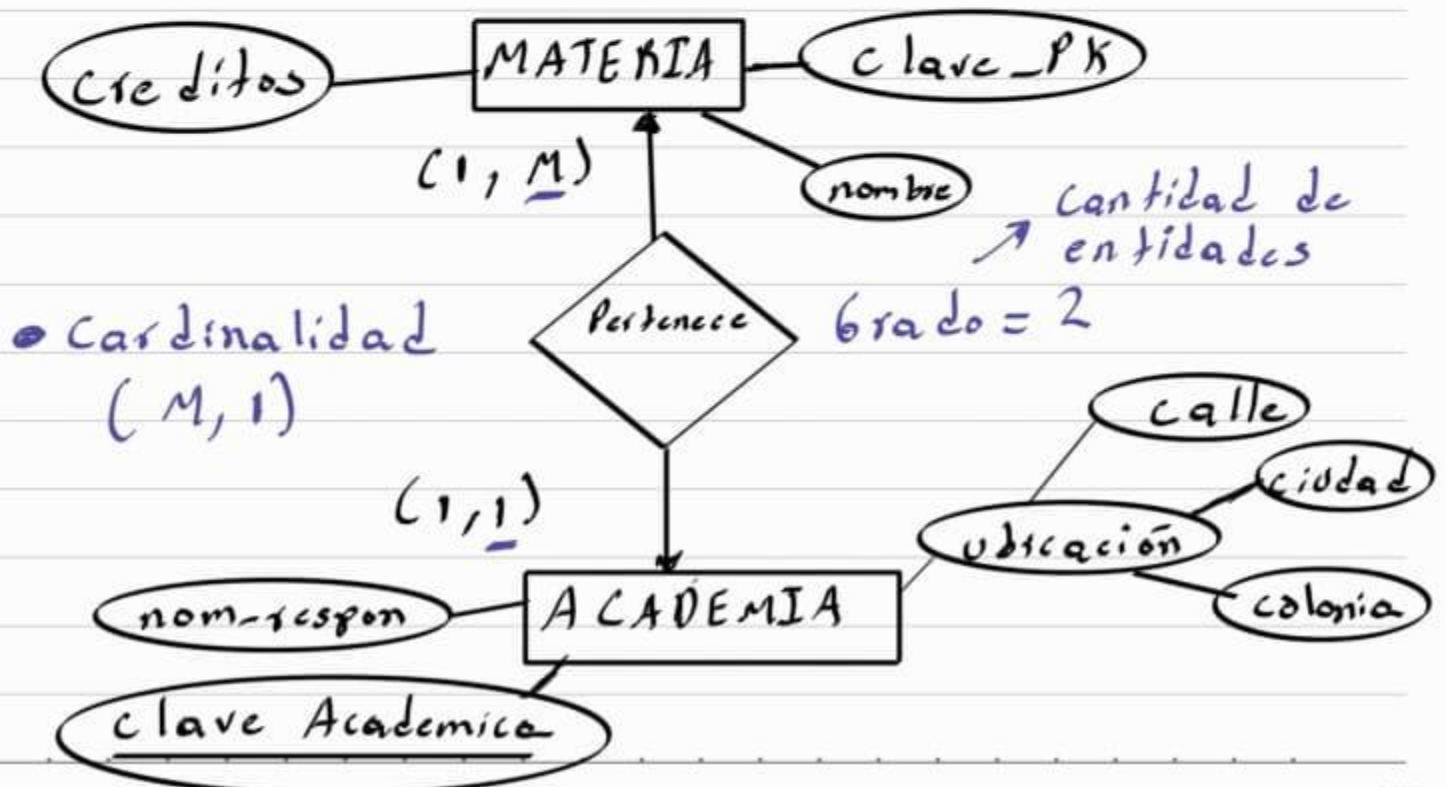 creditos
MATERIA
clave_PK
(1, M)
nombre
cantidad de
entidades
Pertenece
Grado = 2
• Cardinalidad
(M, 1)
calle
ciudad
(1, 1)
ubicación
colonia
nom-respon
ACADEMIA
clave Academica